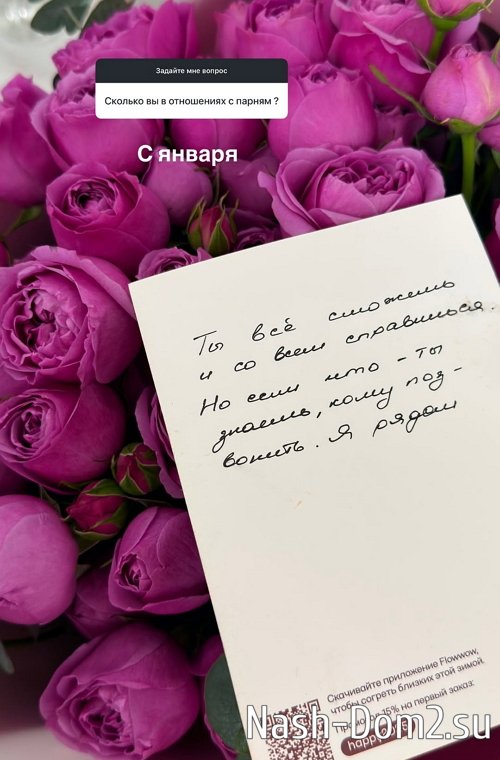 Задайте мне вопрос
Сколько вы в отношениях с парням ?
С января
Ты всё сможешь
и со всем справишься.
Но если что - ты
знаешь, кому поз-
вонить. Я рядом
Скачивайте приложение Flowwow,
чтобы согреть близких этой зимой.
15% на первый заказ:
Nash-Dom2.su